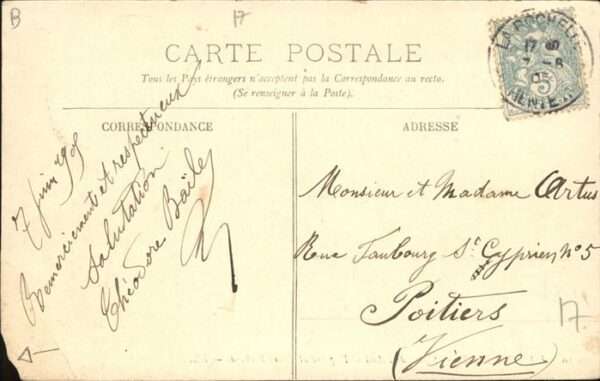 B
17
CARTE POSTALE
Tous les Pays étrangers n'acceptent pas la Correspondance au recto.
(Se renseigner à la Poste).
CORRESPONDANCE
7 juin 1905
Remerciement et respectueux
Salutation
Théodore
ADRESSE
LA ROCHELLE
17
7 - 6
05
Monsieur et Madame Artus
Rue Faubourg St Cyprien no 5
Poitiers
(Vienne)
17